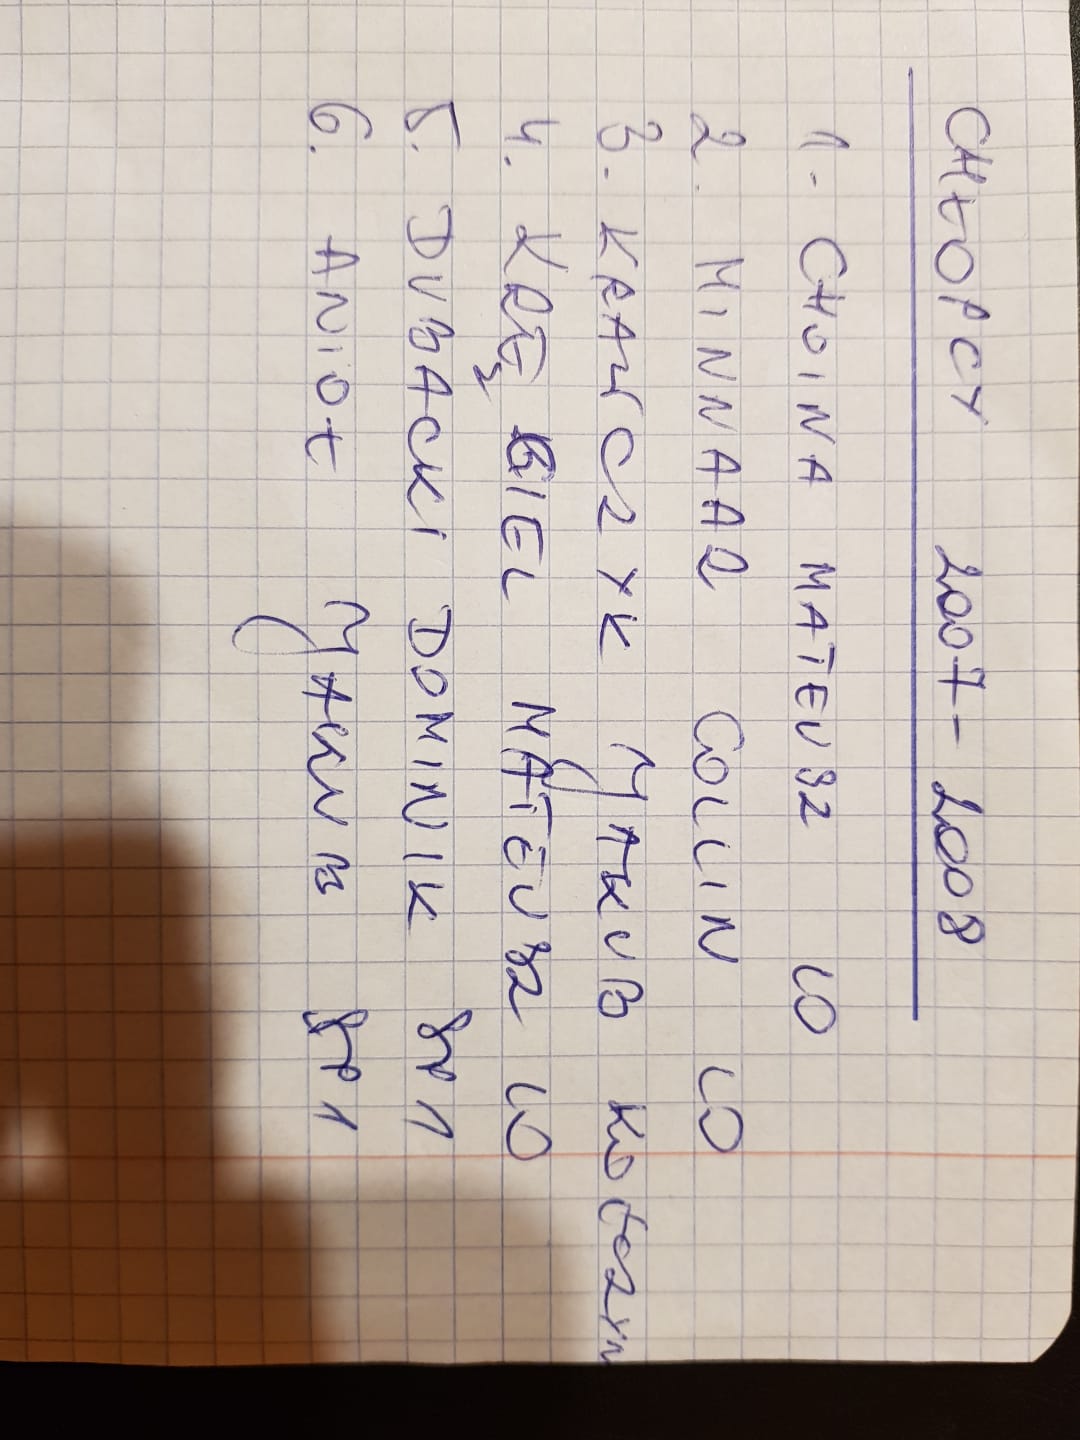 CHŁOPCY 2007-2008
1. CHOINA MATEUSZ LO
2. MINNAAR COLIN LO
3. KRAWCZYK JAKUB KOŁCZYN
4. KRĘGIEL MATEUSZ LO
5. DUBACKI DOMINIK SP1
6. ANIOŁ JAKUB SP1